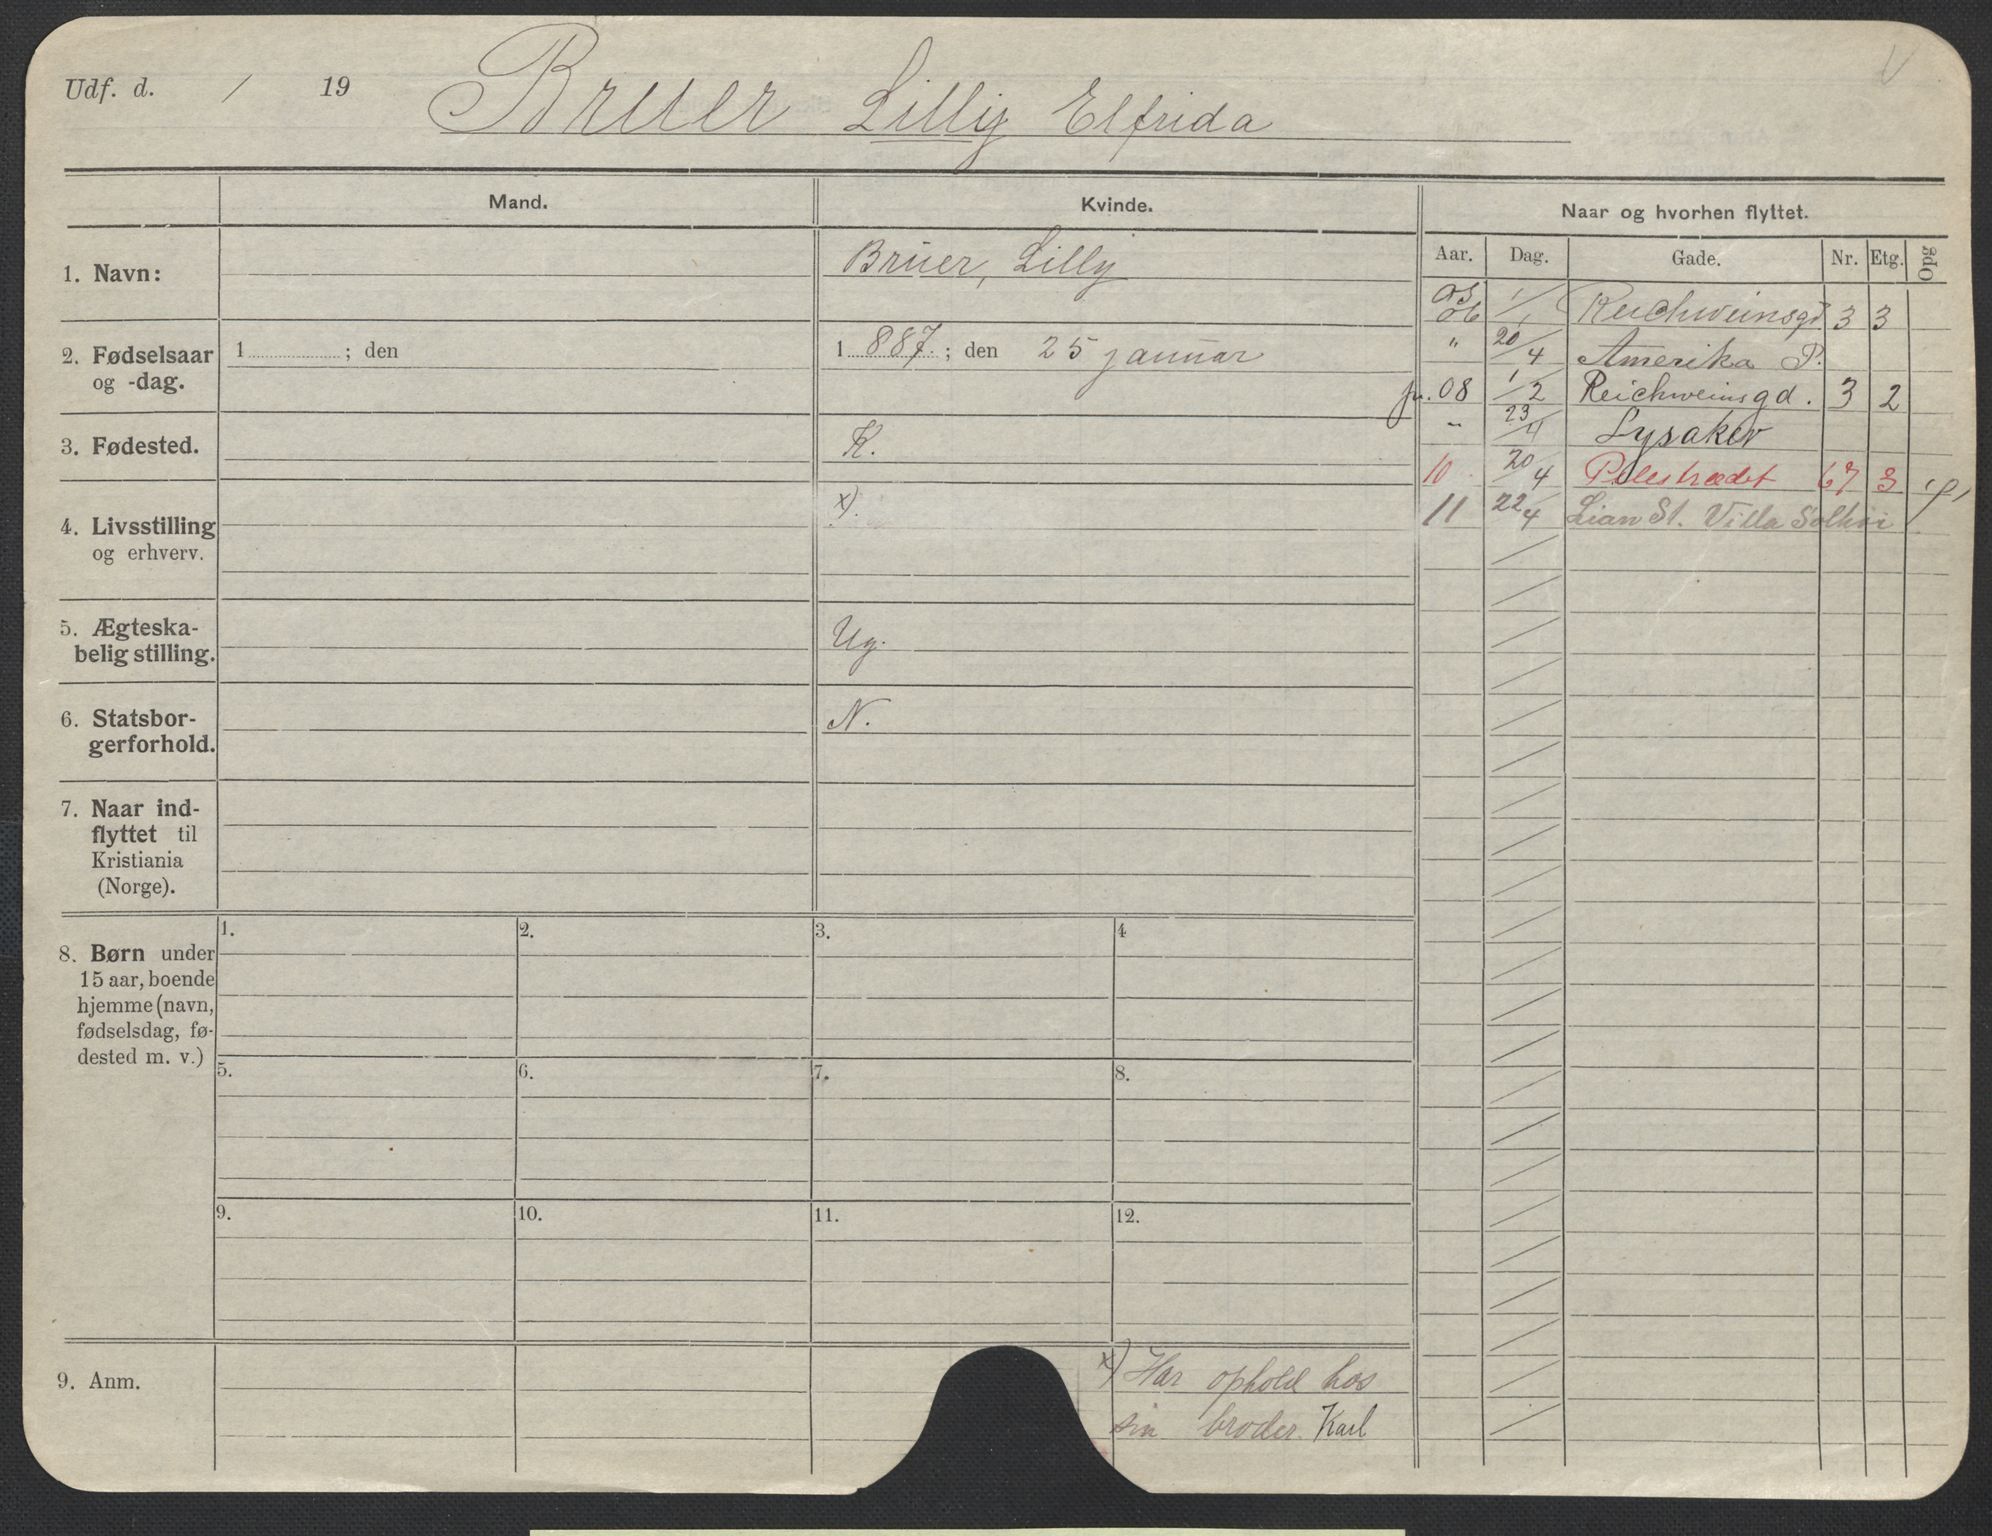 Udf. d. / 19 Bruer Lilly Elfrida
Mand. Kvinde. Naar og hvorhen flyttet.
Aar. Dag. Gade. Nr. Etg. Opg
1. Navn: Bruer, Lilly
2. Fødselsaar og -dag. 1 ; den 1 887. ; den 25 januar
3. Fødested. K.
4. Livsstilling og erhverv. x).
5. Ægteska-
belig stilling. Ug.
6. Statsbor-
gerforhold. N.
7. Naar ind-
flyttet til
Kristiania
(Norge).
05
06 1/1 Reichweinsgd 3 3
" 20/4 Amerika P.
fr. 08 1/2 Reichweinsgd. 3 2
" 23/4 Lysaker
10 20/4 Pilestrædet 67 3
11 22/4 Lian St. Villa Solhøi
8. Børn under
15 aar, boende
hjemme (navn,
fødselsdag, fø-
dested m. v.)
1. 2. 3. 4
5. 6. 7. 8.
9. 10. 11. 12.
9. Anm.
x) Har ophold hos
sin broder Karl